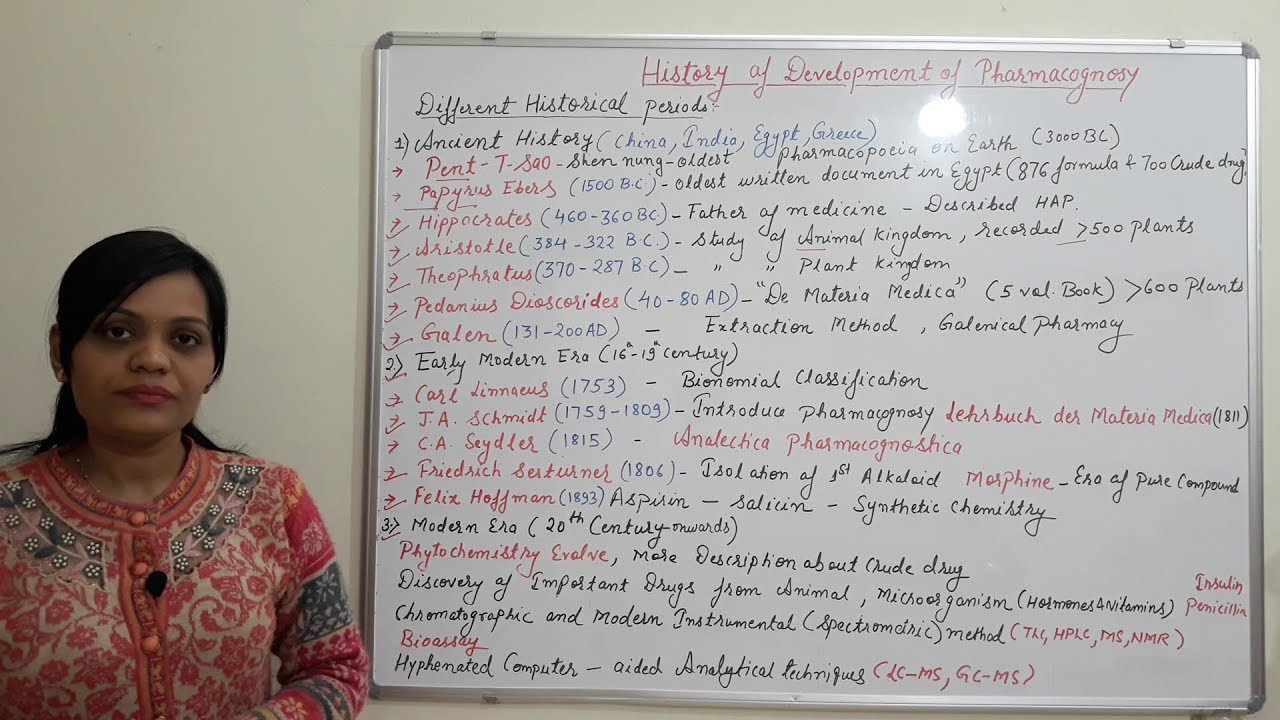 History of Development of Pharmacognosy
Different Historical periods:-
1) Ancient History (China, India, Egypt, Greece)
→ Pent-T-Sao - Shen nung - oldest pharmacopoeia on Earth (3000 BC)
→ Papyrus Ebers (1500 B.C.) - oldest written document in Egypt (876 formula & 700 Crude drug)
→ Hippocrates (460-360 BC) - Father of medicine - Described HAP.
→ Aristotle (384-322 B.C.) - Study of Animal kingdom, recorded >500 plants
→ Theophratus (370-287 B.C) - " " Plant kingdom
→ Pedanius Dioscorides (40-80 AD) - "De Materia Medica" (5 vol. Book) >600 plants
→ Galen (131-200 AD) - Extraction Method, Galenical Pharmacy
2) Early Modern Era (16th-19th century)
→ Carl Linnaeus (1753) - Bionomial Classification
→ J.A. Schmidt (1759-1809) - Introduce pharmacognosy Lehrbuch der Materia Medica (1811)
→ C.A. Seydler (1815) - Analectica Pharmacognostica
→ Friedrich Serturner (1806) - Isolation of 1st Alkaloid Morphine - Era of Pure Compound
→ Felix Hoffman (1893) Aspirin - Salicin - Synthetic Chemistry
3) Modern Era (20th Century onwards)
Phytochemistry Evolve, More Description about Crude drug
Discovery of Important Drugs from Animal, Microorganism (Hormones & Vitamins) Insulin Penicillin
Chromatographic and Modern Instrumental (Spectrometric) method (TLC, HPLC, MS, NMR)
Bioassay
Hyphenated Computer - aided Analytical techniques (LC-MS, GC-MS)